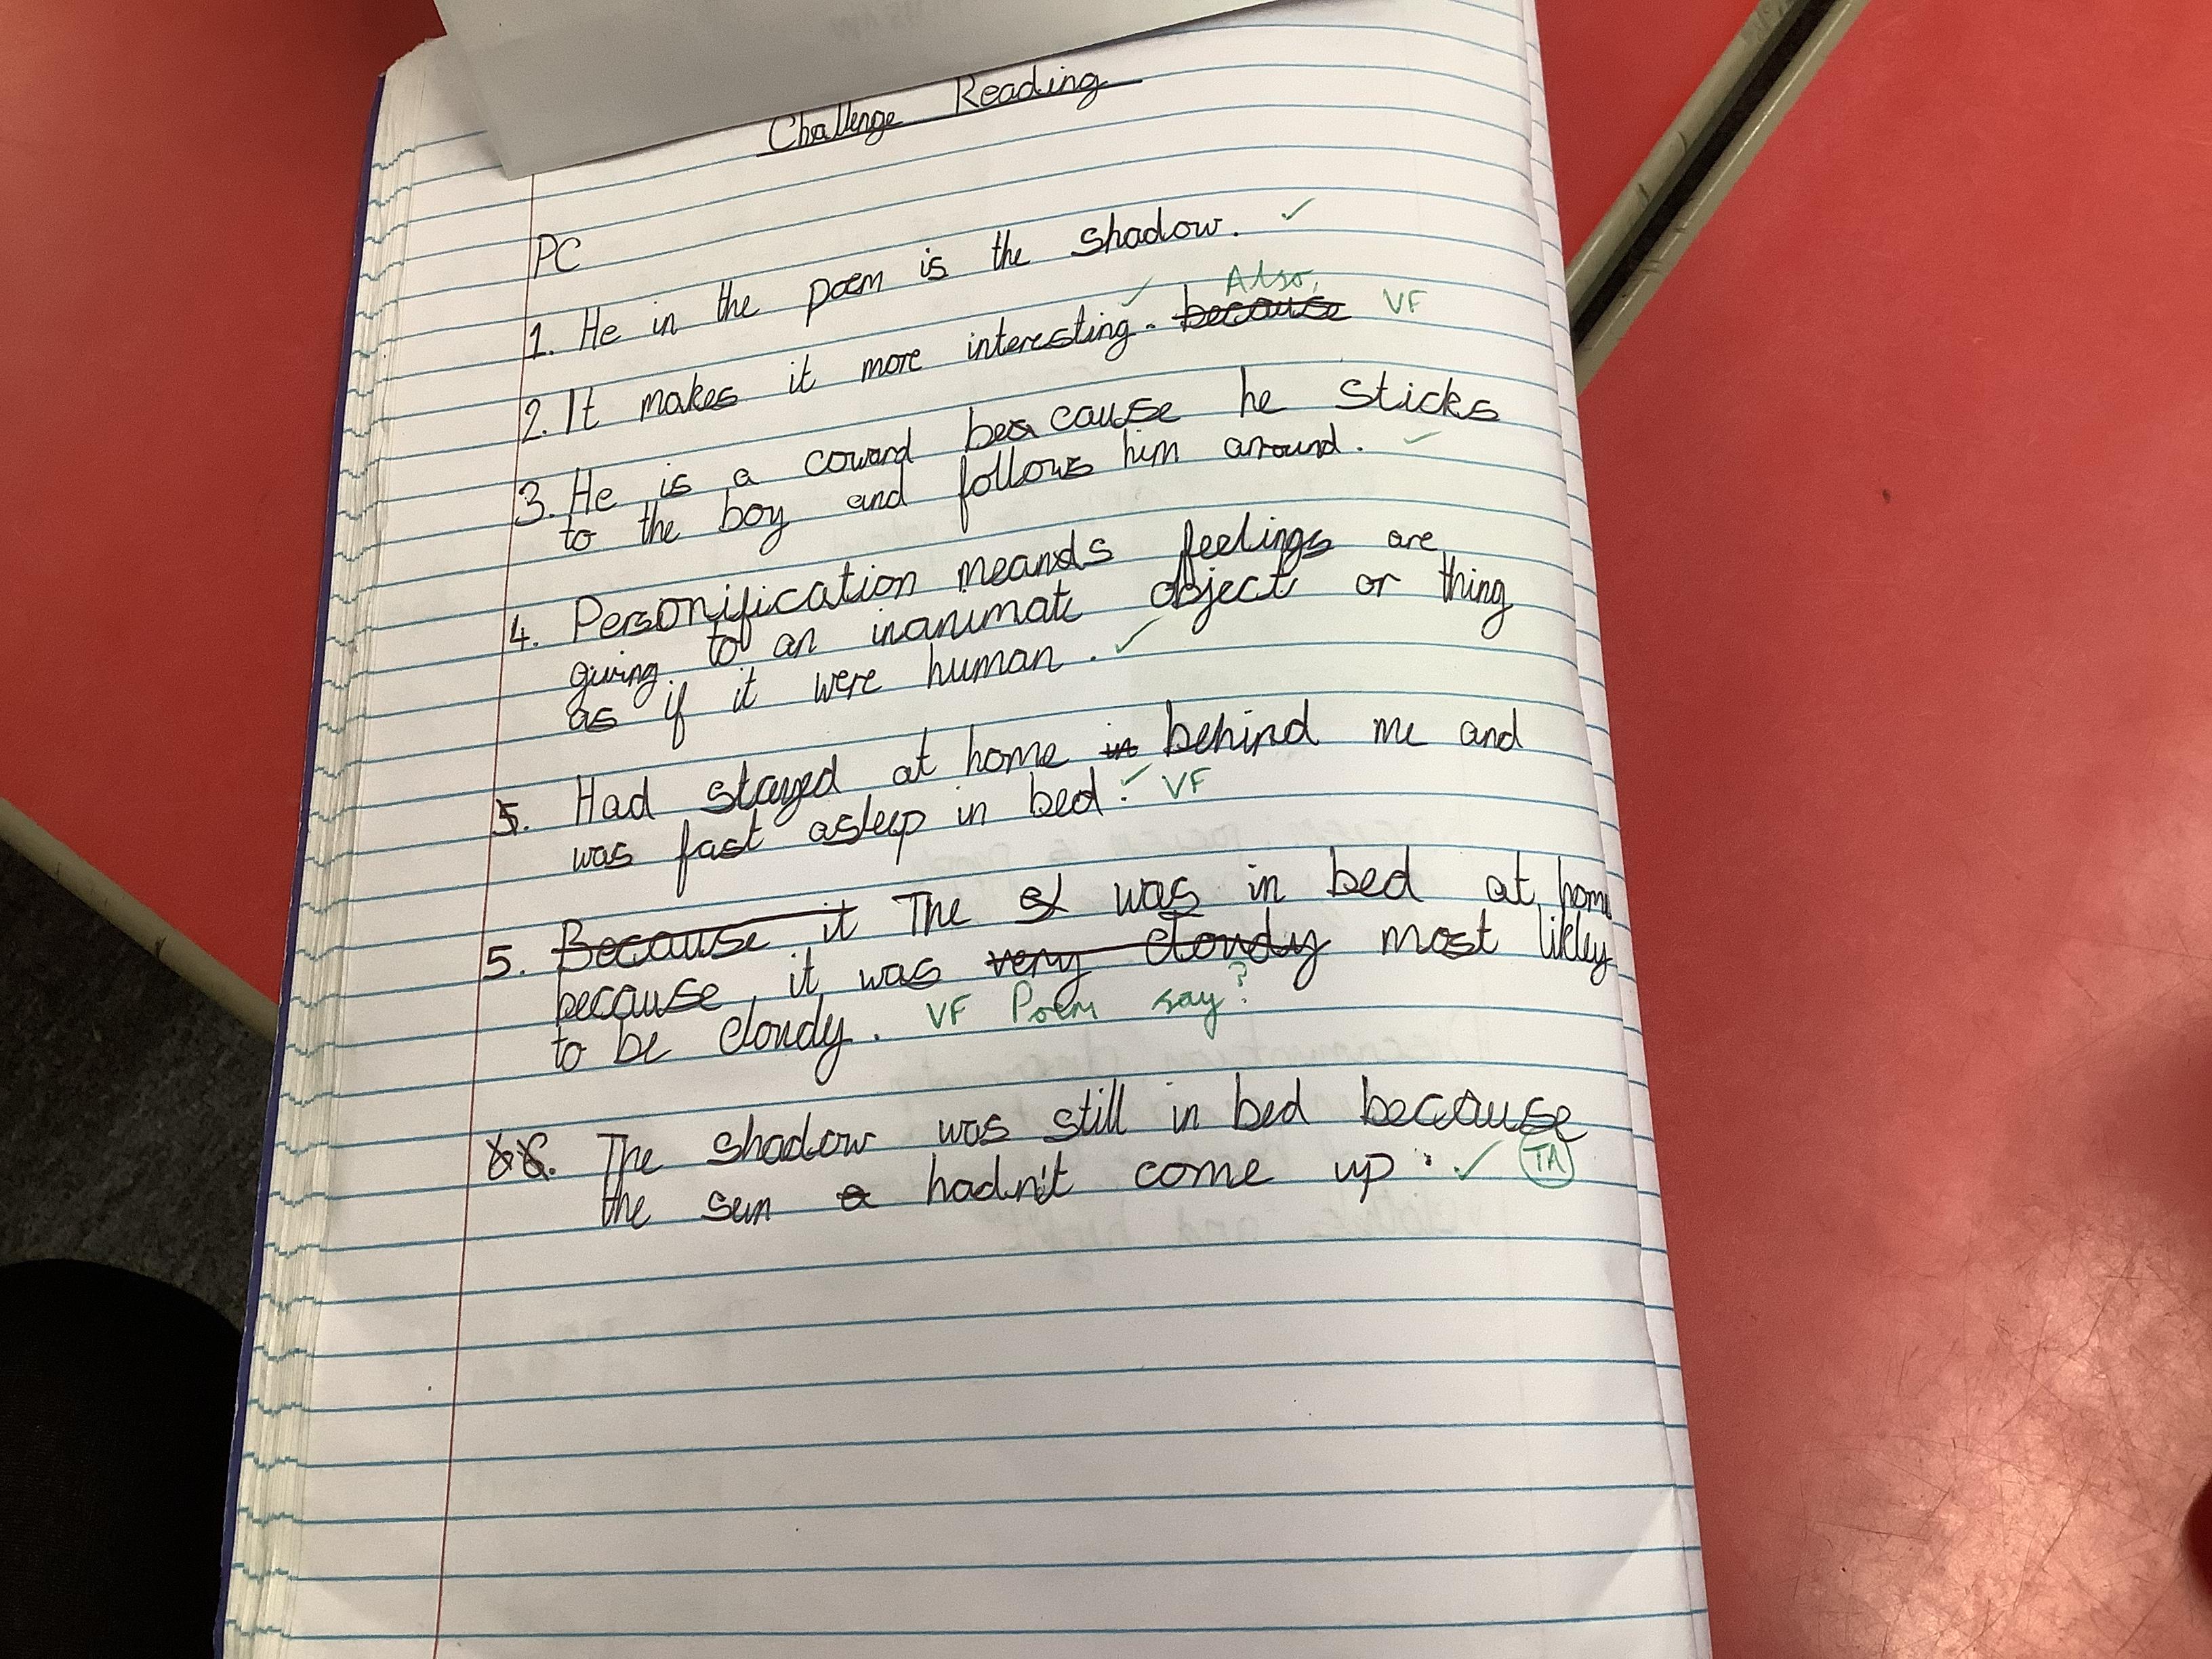 Challenge Reading
PC
1. He in the poem is the shadow. ✓
Also,
2. It makes it more interesting. ✓ because VF
3. He is a coward because he sticks
to the boy and follows him around. ✓
4. Personification means feelings are
giving to an inanimate object or thing
as if it were human. ✓
5. Had stayed at home in behind me and
was fast asleep in bed. ✓ VF
5. Because it The was in bed at home
because it was very cloudy most likley
to be cloudy. VF Poem say?
The shadow was still in bed because
the sun hadn't come up. ✓ TA